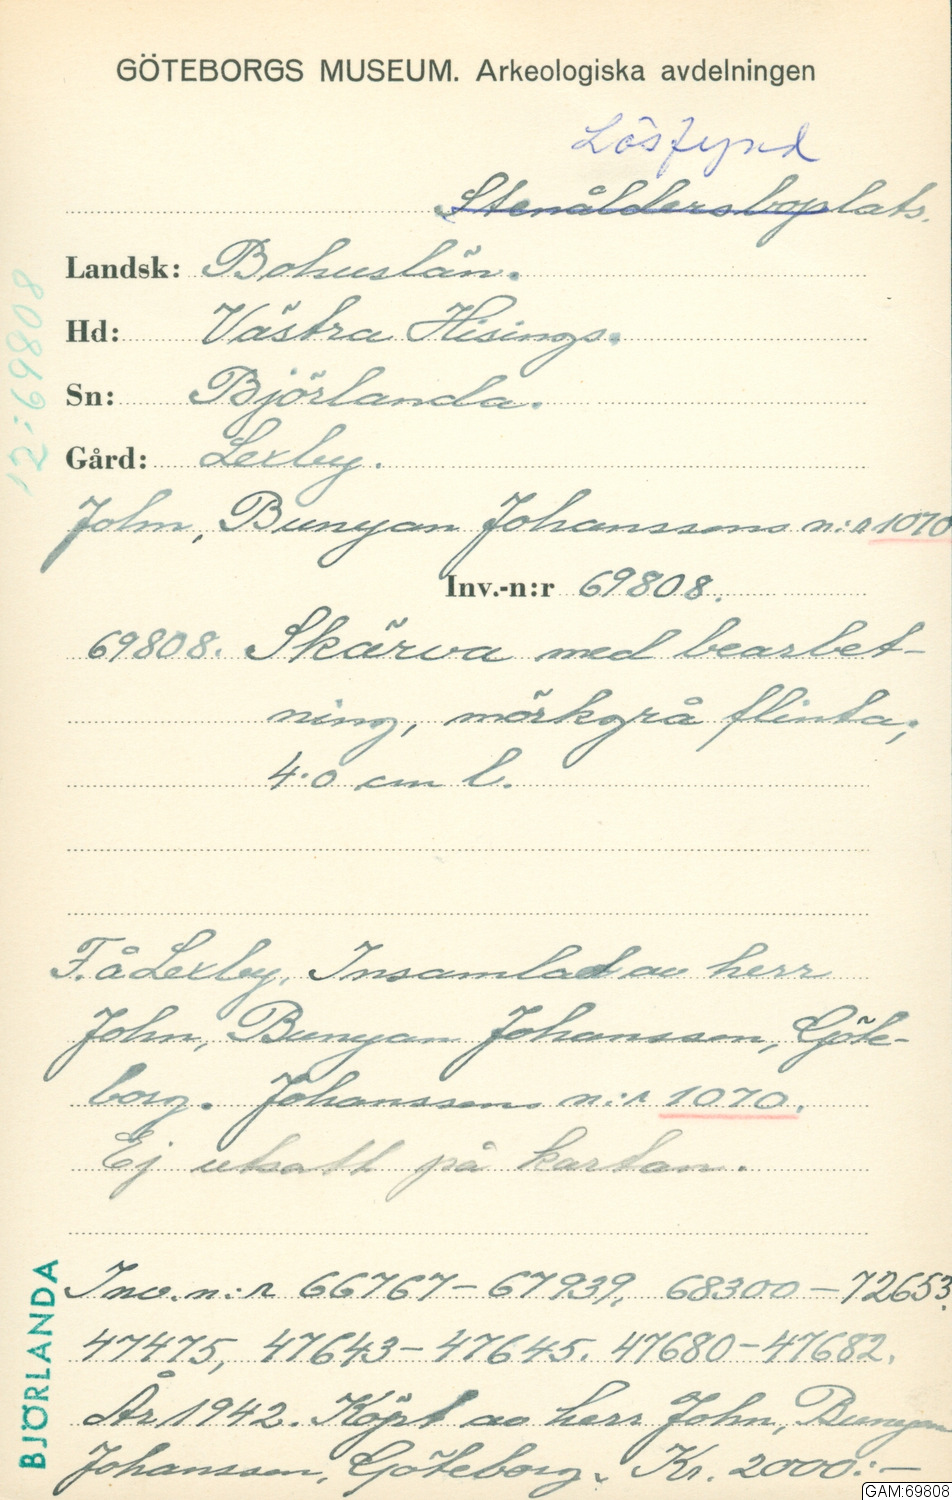 GÖTEBORGS MUSEUM. Arkeologiska avdelningen
Lösfynd
Stenåldersboplats.
Landsk: Bohuslän.
Hd: Västra Hisings.
Sn: Björlanda.
Gård: Lexby.
John, Bunyan Johanssons n:r 1070
Inv.-n:r 69808.
69808. Skärva med bearbet-
ning, mörkgrå flinta,
4.0 cm l.
F. å Lexby. Insamlad av herr
John, Bunyan Johansson, Göte-
borg. Johanssons n:r 1070.
Ej utsatt på kartan.
Inv. n:r 66767-67939, 68300-72653.
47475, 47643-47645. 47680-47682.
År 1942. Köpt av herr John, Bunyan
Johansson, Göteborg. Kr. 2000:-
12:69808
BJÖRLANDA
GAM:69808